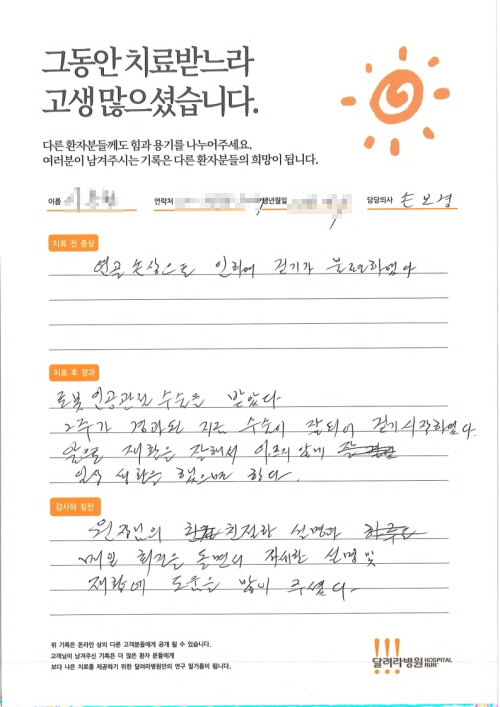 그동안 치료받느라
고생 많으셨습니다.
다른 환자분들께도 힘과 용기를 나누어주세요.
여러분이 남겨주시는 기록은 다른 환자분들의 희망이 됩니다.
이름 연락처 생년월일 담당의사 손보경
치료 전 증상
연골 손상으로 인하여 걷기가 불편하였다
치료 후 경과
로봇 인공관절 수술을 받았다
2주가 경과된 지금 수술이 잘되어 걷기 시작하였다.
앞으로 재활을 잘해서 아프지 않게
일상 생활을 했으면 한다.
감사와 칭찬
원장님의 친절한 설명과
매일 회진을 돌면서 자세한 설명 및
재활에 도움을 많이 주셨다.
위 기록은 온라인 상의 다른 고객분들에게 공개 될 수 있습니다.
고객님이 남겨주신 기록은 더 많은 환자 분들에게
보다 나은 치료를 제공하기 위한 달려라병원만의 연구 밑거름이 됩니다.
달려라병원 HOSPITAL RUN